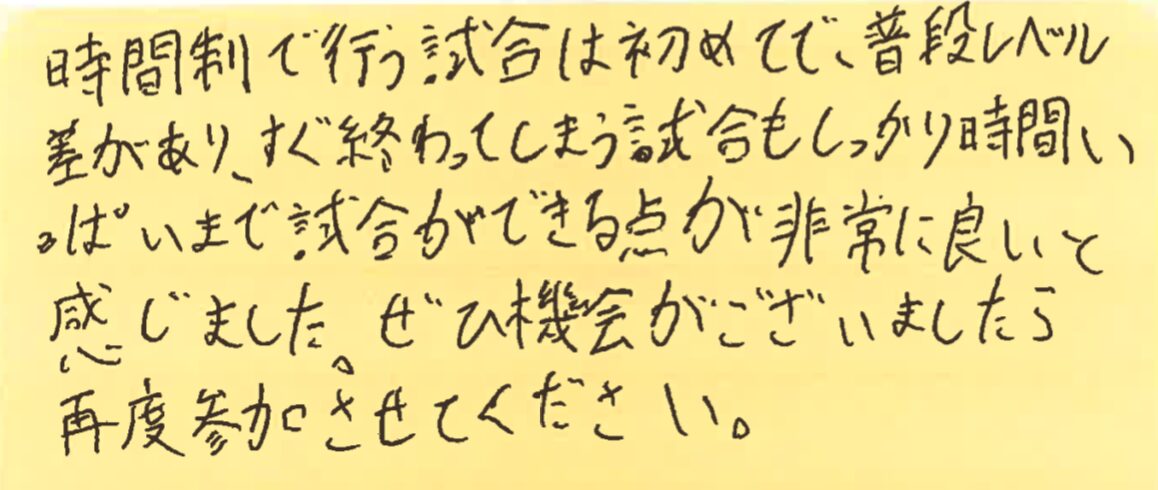 時間制で行う試合は初めてで、普段レベル
差があり、すぐ終わってしまう試合もしっかり時間い
っぱいまで試合ができる点が非常に良いと
感じました。ぜひ機会がございましたら
再度参加させてください。